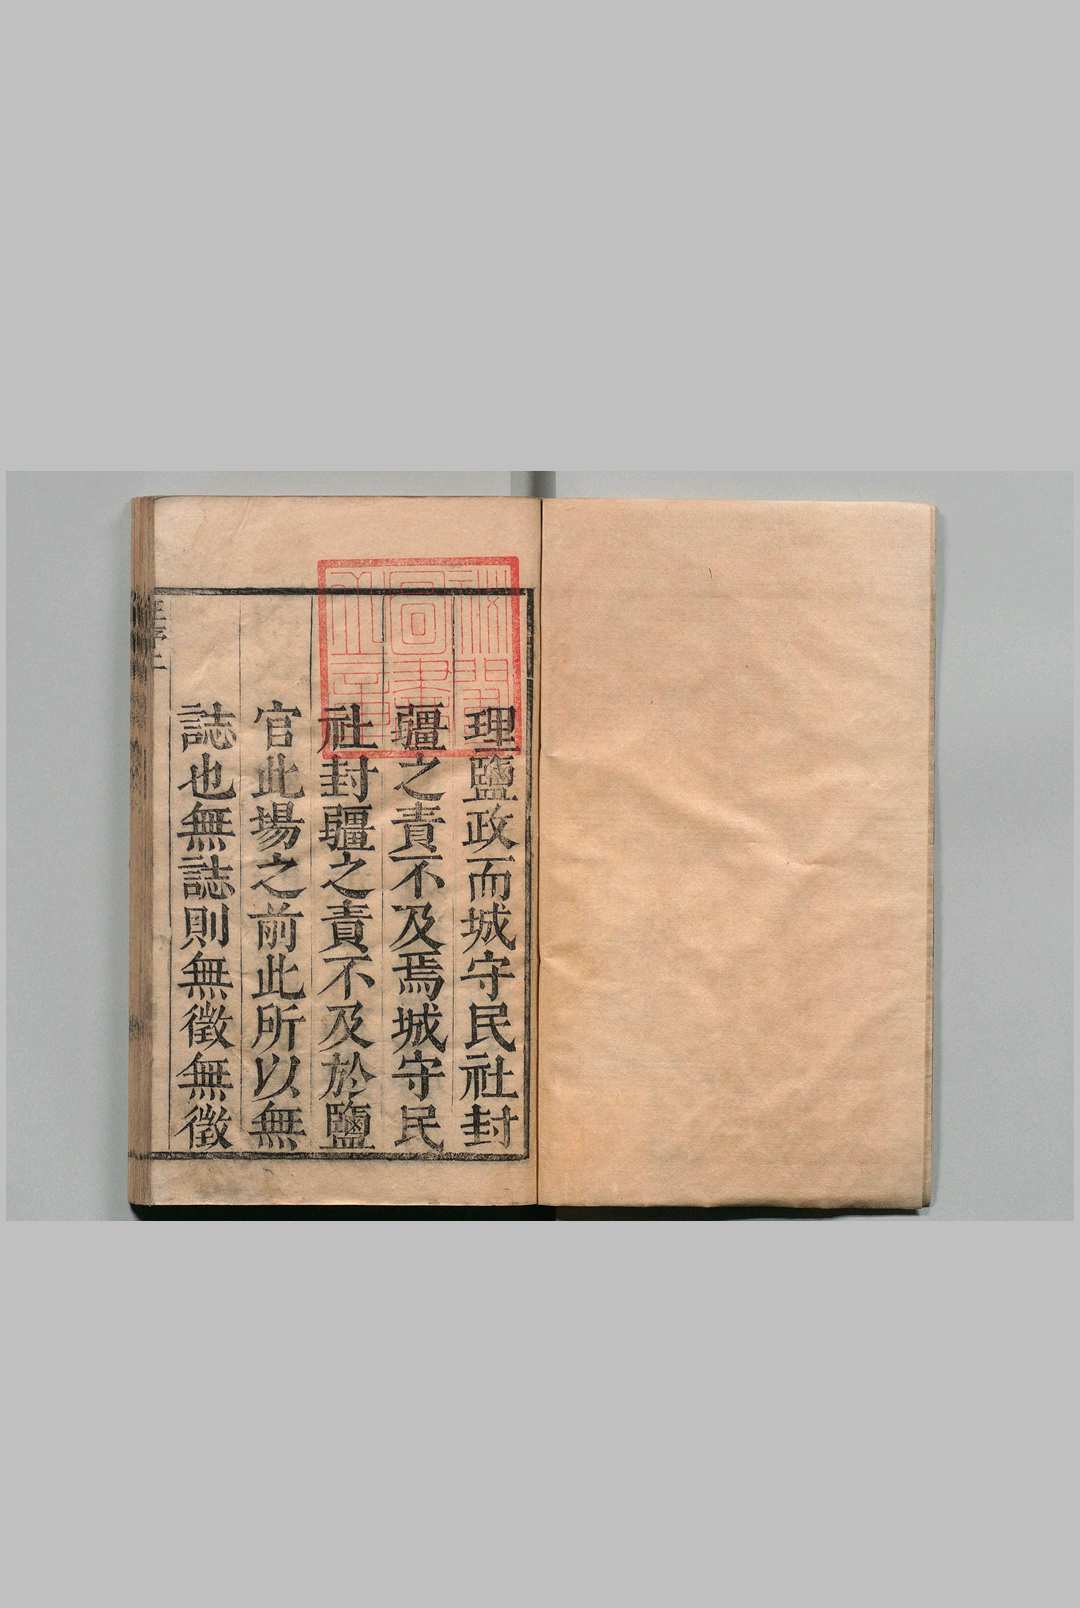 理鹽政而城守民社封
疆之責不及焉城守民
社封疆之責不及於鹽
官此場之前此所以無
誌也無誌則無徵無徵